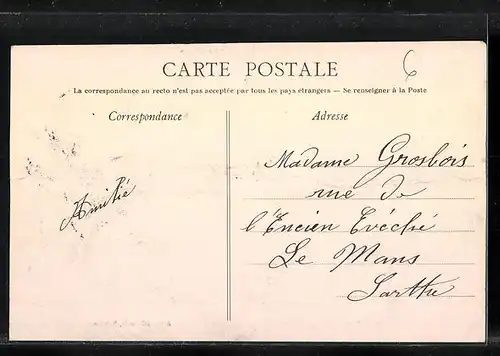 6
CARTE POSTALE
La correspondance au recto n'est pas acceptée par tous les pays étrangers — Se renseigner à la Poste
Correspondance
Adresse
Amitié
Madame Grosbois
rue de
l'Encien Evéché
Le Mans
Sarthe